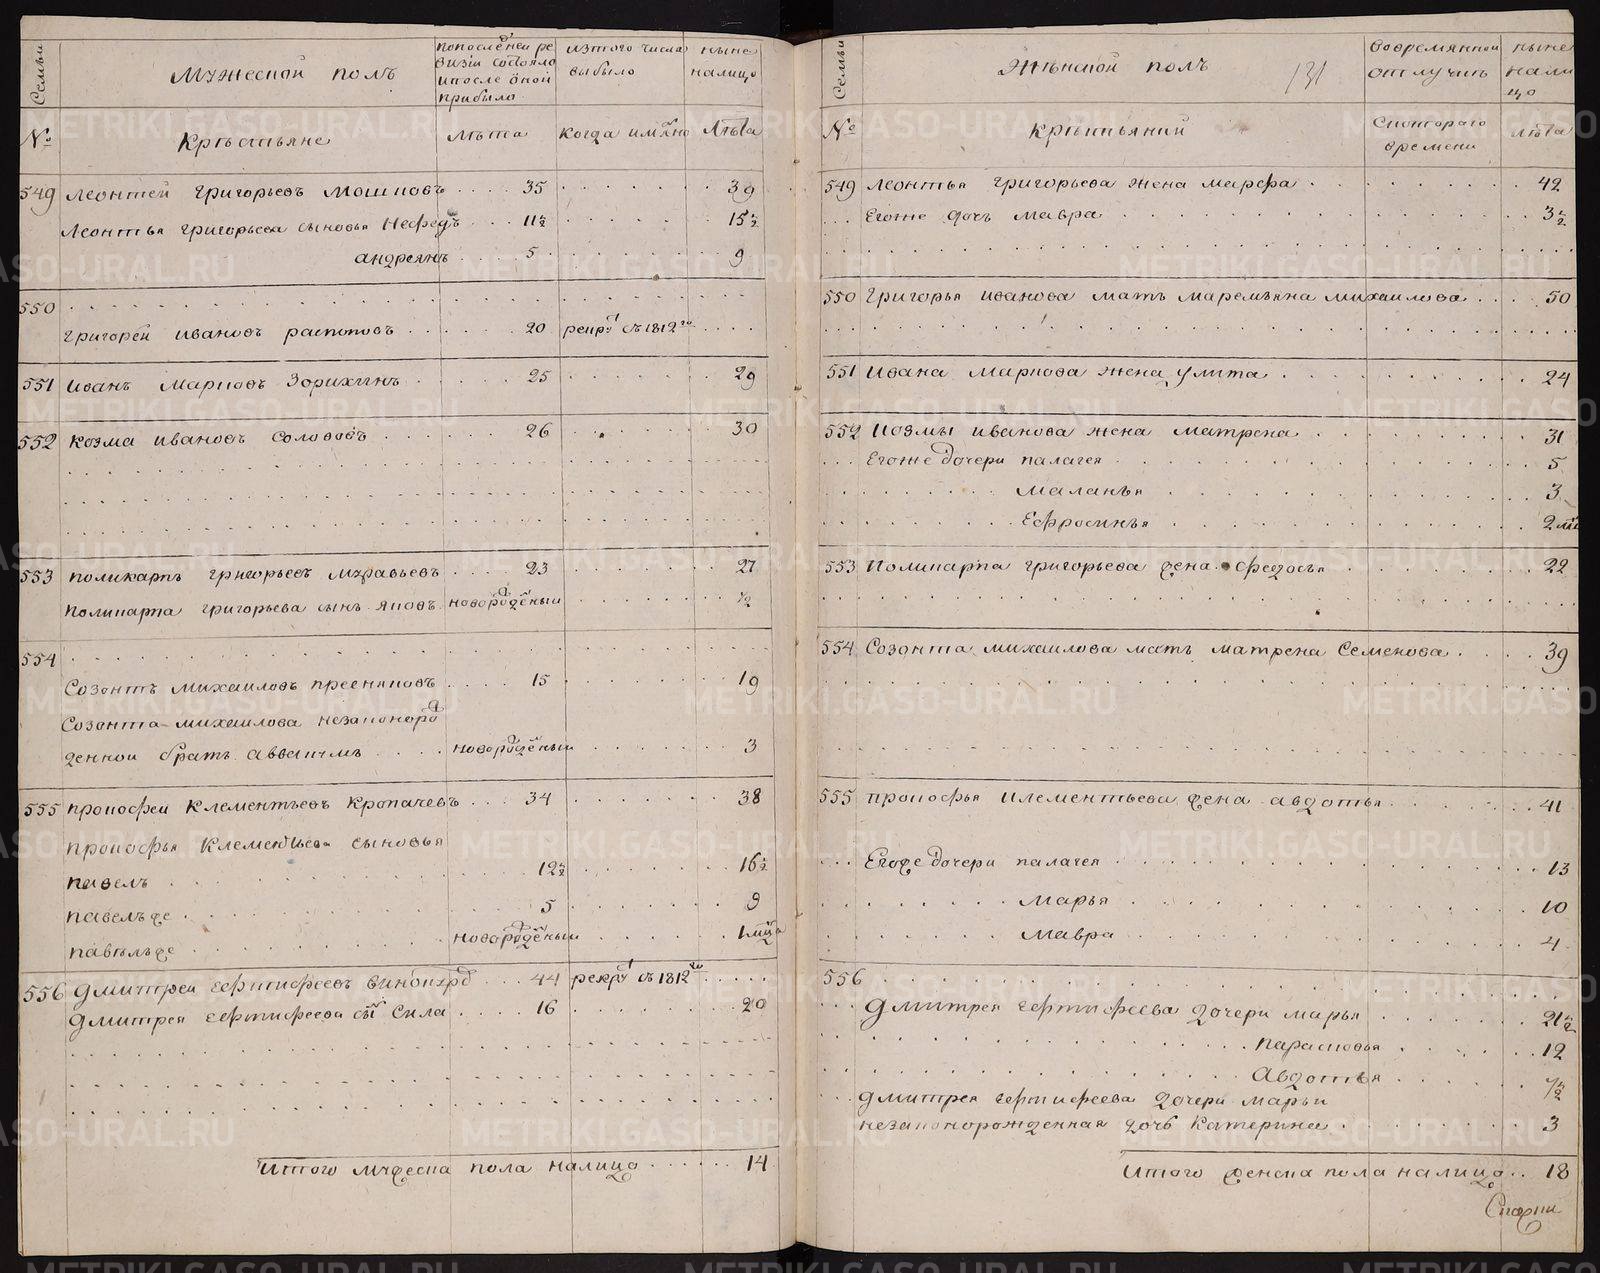 Семьи
Мужеской полъ
попоследнеи ре
визiи состояло
ипосле оной
прибыло
изтого числа
выбыло
ныне
налицо
№
Крестьяне
Лѣта
когда имянно
Лѣта
549 Леонтей Григорьевъ Мошновъ 35 39
Леонтья Григорьева сыновья Нефедъ 11½ 15½
андреянъ 5 9
550
Григорей Ивановъ распоповъ 20 рекру съ 1812го
551 Иванъ Марковъ Зорихинъ 25 29
552 Козма Ивановъ Солововъ 26 30
553 поликарпъ григорьевъ Муравьевъ 23 27
поликарпа григорьева сынъ Яковъ новорожденыи ½
554
Созонтъ михаиловъ пресняковъ 15 19
Созонта михаилова незаконорож
денной братъ аввакимъ новорожденыи 3
555 прокофеи Клементьевъ Кропачевъ 34 38
прокофья Клементьева сыновья
павелъ 12½ 16½
павелъже 5 9
павелъже новорожденыи 1 мцъ
556 Дмитреи ефтифеевъ винокурв 44 рекру съ 1812го
Дмитрея ефтифеева сынъ Сила 16 20
Итого мужеска пола налицо 14
Семьи
Женской полъ
131
вовремянной
отлучкѣ
ныне
нали
цо
№
крестьянки
Скотораго
времени
лѣта
549 Леонтья григорьева жена марфа 42
Егоже дочь мавра 3½
550 Григорья иванова мать маремьяна михаилова 50
551 Ивана маркова жена улита 24
552 Козмы иванова жена матрена 31
Егоже дочери палагея 5
Маланья 3
Ефросинья 2 мц
553 Поликарпа григорьева жена федосья 22
554 Созонта михаилова мать матрена Семенова 39
555 прокофья Клементьева жена авдотья 41
Егоже дочери палагея 13
Марья 10
Мавра 4
556
Дмитрея ефтифеева дочери марья 21½
парасковья 12
Авдотья ½
Дмитрея ефтифеева дочери марьи
незаконорожденная дочь Катерина 3
Итого женска пола налицо 18
METRIKI.GASO-URAL.RU